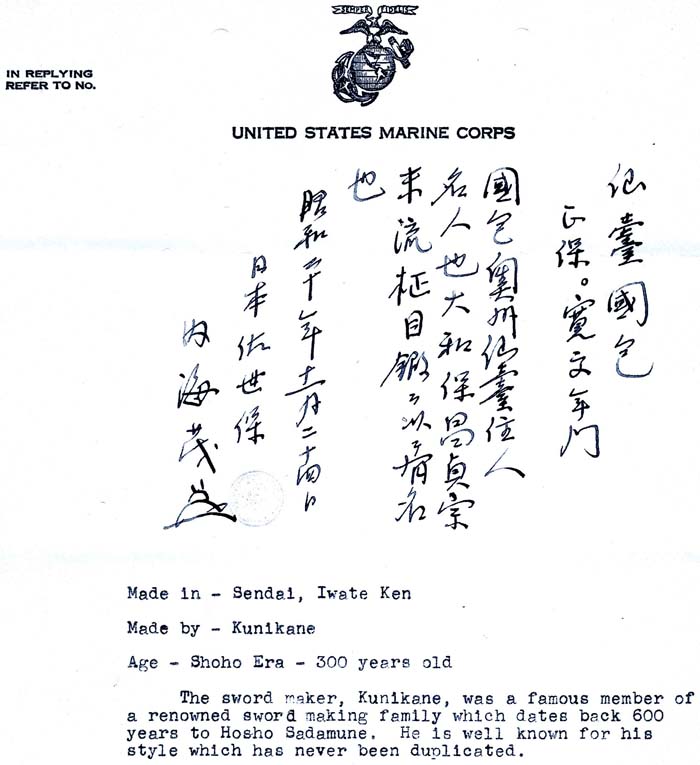 SEMPER FIDELIS
IN REPLYING
REFER TO NO.
UNITED STATES MARINE CORPS
仙臺國包
正保。寛文年間
國包奥州仙臺住人
名人也大和保昌貞宗
末流柾目鍛ヲ以テ有名
也
昭和二十年十一月二十四日
日本佐世保
内海茂
Made in - Sendai, Iwate Ken
Made by - Kunikane
Age - Shoho Era - 300 years old
The sword maker, Kunikane, was a famous member of
a renowned sword making family which dates back 600
years to Hosho Sadamune. He is well known for his
style which has never been duplicated.